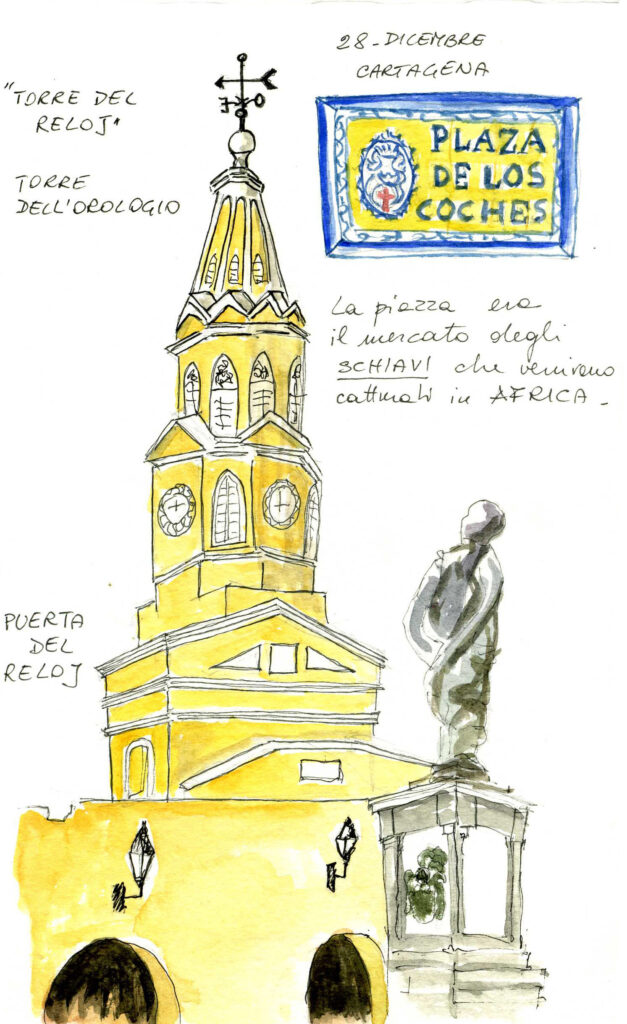 28-DICEMBRE
CARTAGENA
"TORRE DEL
RELOJ"
TORRE
DELL'OROLOGIO
PLAZA
DE LOS
COCHES
La piazza era
il mercato degli
SCHIAVI che venivano
catturati in AFRICA-
PUERTA
DEL
RELOJ
E O